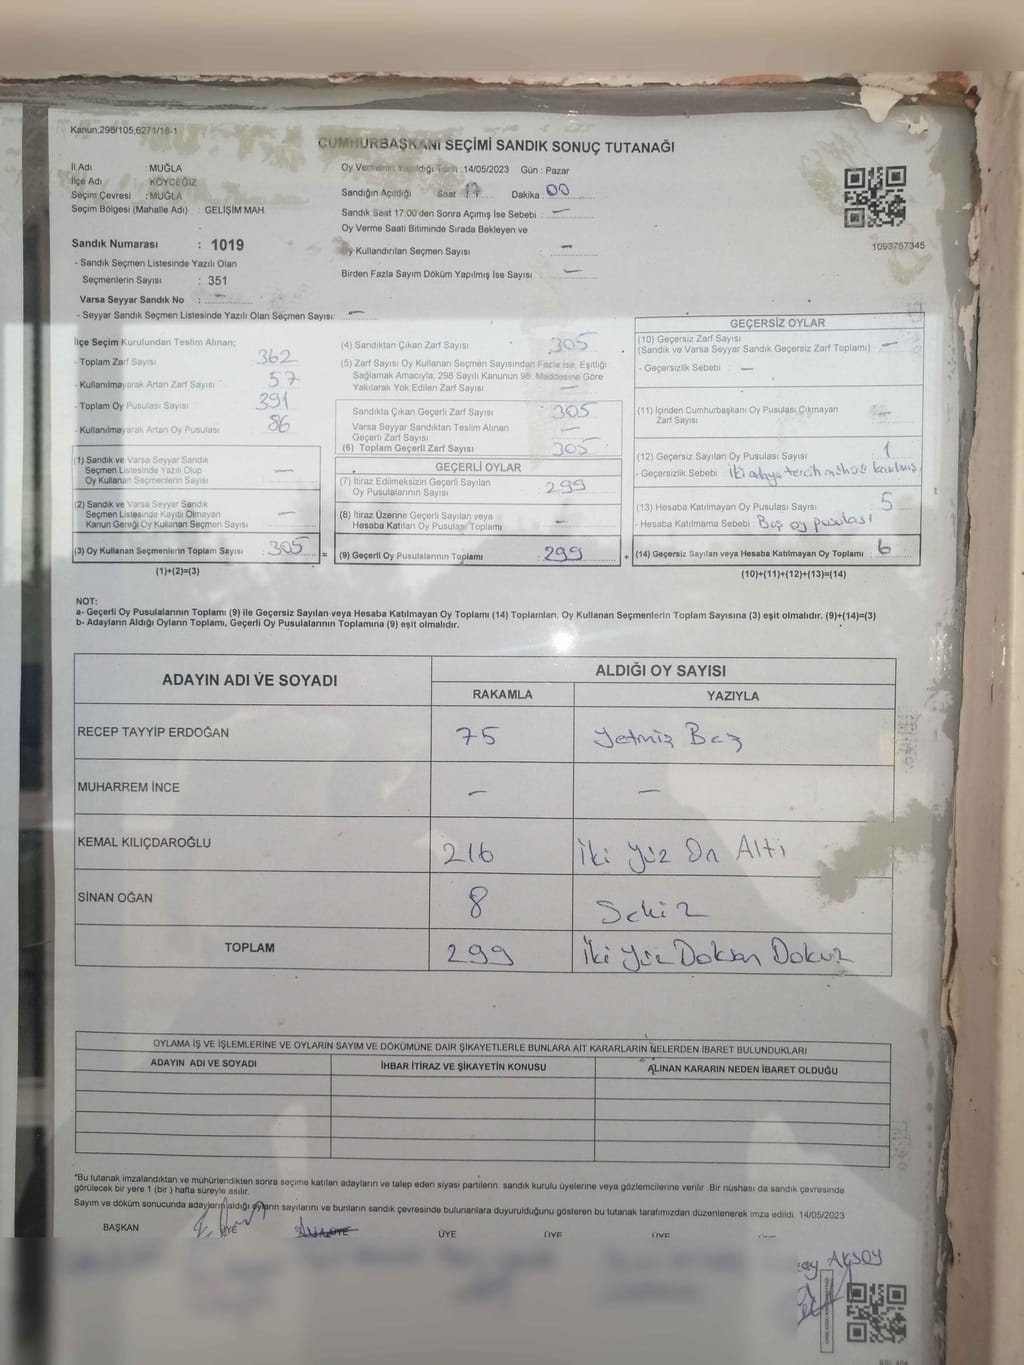 Kanun;298/105,6271/18-1
CUMHURBAŞKANI SEÇİMİ SANDIK SONUÇ TUTANAĞI
İl Adı MUĞLA
İlçe Adı KÖYCEĞİZ
Seçim Çevresi : MUĞLA
Seçim Bölgesi (Mahalle Adı) : GELİŞİM MAH
Sandık Numarası : 1019
- Sandık Seçmen Listesinde Yazılı Olan
Seçmenlerin Sayısı : 351
Varsa Seyyar Sandık No : –
- Seyyar Sandık Seçmen Listesinde Yazılı Olan Seçmen Sayısı: –
Oy Vermenin Yapıldığı Tarih : 14/05/2023 Gün : Pazar
Sandığın Açıldığı Saat 17 Dakika : 00
Sandık Saat 17:00'den Sonra Açımış İse Sebebi : –
Oy Verme Saati Bitiminde Sırada Bekleyen ve
Oy Kullandırılan Seçmen Sayısı –
Birden Fazla Sayım Döküm Yapılmış İse Sayısı : –
1093757345
İlçe Seçim Kurulundan Teslim Alınan;
- Toplam Zarf Sayısı 362
- Kullanılmayarak Artan Zarf Sayısı 57
- Toplam Oy Pusulası Sayısı 391
- Kullanılmayarak Artan Oy Pusulası 86
(1) Sandık ve Varsa Seyyar Sandık
Seçmen Listesinde Yazılı Olup
Oy Kullanan Seçmenlerin Sayısı : —
(2) Sandık ve Varsa Seyyar Sandık
Seçmen Listesinde Kayıtlı Olmayan
Kanun Gereği Oy Kullanan Seçmen Sayısı : –
(3) Oy Kullanan Seçmenlerin Toplam Sayısı : 305 =
(1)+(2)=(3)
(4) Sandıktan Çıkan Zarf Sayısı : 305
(5) Zarf Sayısı Oy Kullanan Seçmen Sayısından Fazla ise, Eşitliği
Sağlamak Amacıyla, 298 Sayılı Kanunun 98. Maddesine Göre
Yakılarak Yok Edilen Zarf Sayısı : –
Sandıkta Çıkan Geçerli Zarf Sayısı : 305
Varsa Seyyar Sandıktan Teslim Alınan
Geçerli Zarf Sayısı : –
(6) Toplam Geçerli Zarf Sayısı : 305
GEÇERLİ OYLAR
(7) İtiraz Edilmeksizin Geçerli Sayılan
Oy Pusulalarının Sayısı : 299
(8) İtiraz Üzerine Geçerli Sayılan veya
Hesaba Katılan Oy Pusulası Toplamı : –
(9) Geçerli Oy Pusulalarının Toplamı : 299 +
GEÇERSİZ OYLAR
(10) Geçersiz Zarf Sayısı
(Sandık ve Varsa Seyyar Sandık Geçersiz Zarf Toplamı) : –
- Geçersizlik Sebebi : —
(11) İçinden Cumhurbaşkanı Oy Pusulası Çıkmayan
Zarf Sayısı : –
(12) Geçersiz Sayılan Oy Pusulası Sayısı : 1
- Geçersizlik Sebebi : İki adaya tercih mührü basılmış
(13) Hesaba Katılmayan Oy Pusulası Sayısı : 5
- Hesaba Katılmama Sebebi : Boş oy pusulası
(14) Geçersiz Sayılan veya Hesaba Katılmayan Oy Toplamı : 6
(10)+(11)+(12)+(13)=(14)
NOT:
a- Geçerli Oy Pusulalarının Toplamı (9) ile Geçersiz Sayılan veya Hesaba Katılmayan Oy Toplamı (14) Toplamları, Oy Kullanan Seçmenlerin Toplam Sayısına (3) eşit olmalıdır. (9)+(14)=(3)
b- Adayların Aldığı Oyların Toplamı, Geçerli Oy Pusulalarının Toplamına (9) eşit olmalıdır.
ADAYIN ADI VE SOYADI ALDIĞI OY SAYISI
RAKAMLA YAZIYLA
RECEP TAYYİP ERDOĞAN 75 Yetmiş Beş
MUHARREM İNCE – –
KEMAL KILIÇDAROĞLU 216 İki Yüz On Altı
SİNAN OĞAN 8 Sekiz
TOPLAM 299 İki Yüz Doksan Dokuz
OYLAMA İŞ VE İŞLEMLERİNE VE OYLARIN SAYIM VE DÖKÜMÜNE DAİR ŞİKAYETLERLE BUNLARA AİT KARARLARIN NELERDEN İBARET BULUNDUKLARI
ADAYIN ADI VE SOYADI İHBAR İTİRAZ VE ŞİKAYETİN KONUSU ALINAN KARARIN NEDEN İBARET OLDUĞU
*Bu tutanak imzalandıktan ve mühürlendikten sonra seçime katılan adayların ve talep eden siyasi partilerin sandık kurulu üyelerine veya gözlemcilerine verilir .Bir nüshası da sandık çevresinde
görülecek bir yere 1 (bir ) hafta süreyle asılır.
Sayım ve döküm sonucunda adayların aldığı oyların sayılarını ve bunların sandık çevresinde bulunanlara duyurulduğunu gösteren bu tutanak tarafımızdan düzenlenerek imza edildi. 14/05/2023
BAŞKAN ÜYE ÜYE ÜYE ÜYE ÜYE
AKSOY